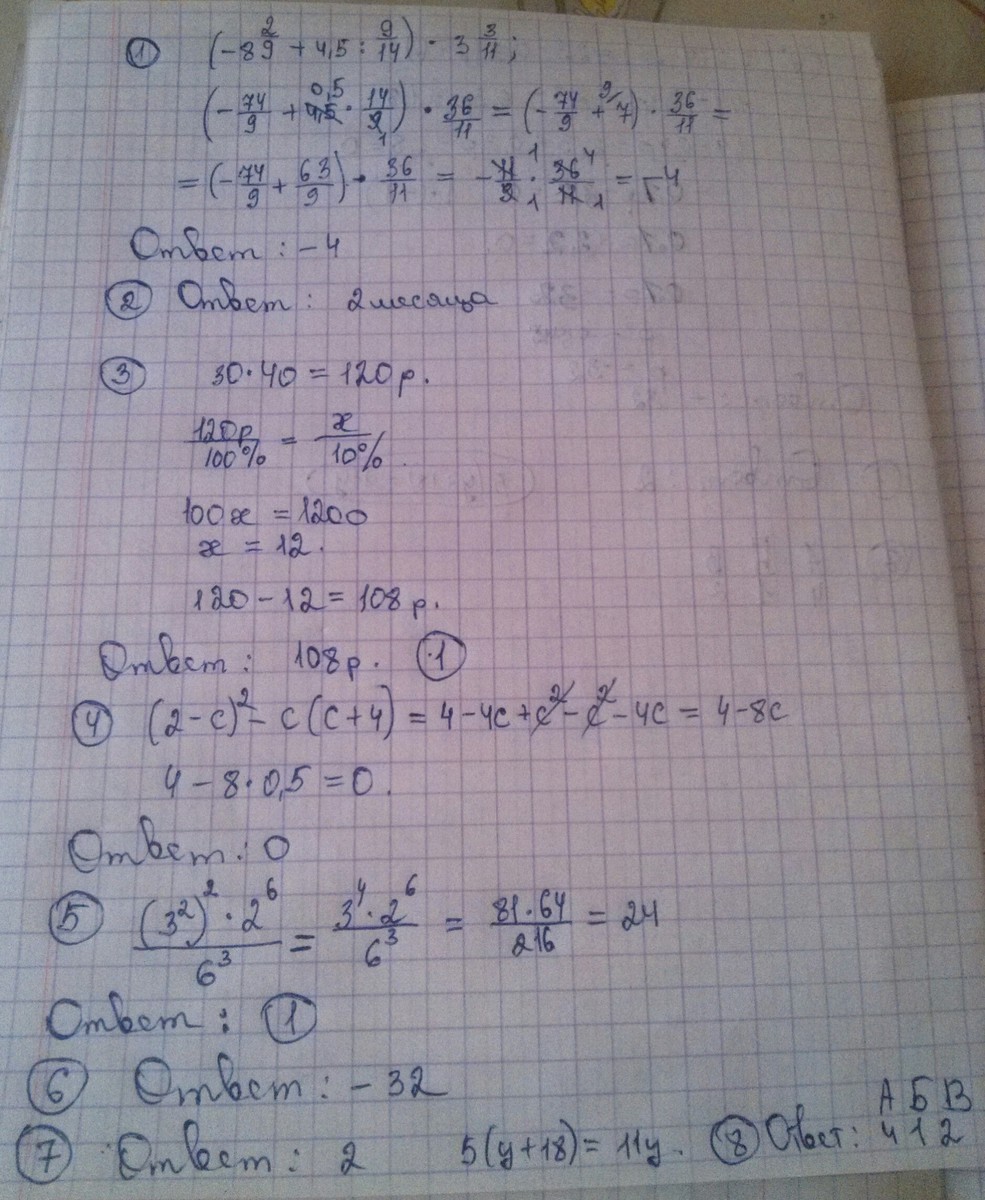 ① (-8 2/9 + 4,5 : 9/14) · 3 3/11;
(-74/9 + 4,5 · 14/9) · 36/11 = (-74/9 + 7) · 36/11 =
= (-74/9 + 63/9) · 36/11 = -11/9 · 36/11 = -4
Ответ : -4
② Ответ : 2 месяца
③ 30·40 = 120р.
120р/100% = x/10%
100x = 1200
x = 12.
120 - 12 = 108 р.
Ответ : 108р. ①
④ (2-c)² - c(c+4) = 4 - 4c + c² - c² - 4c = 4-8c
4 - 8·0,5 = 0.
Ответ : 0
⑤ (3²)² · 2⁶/6³ = 3⁴ · 2⁶/6³ = 81·64/216 = 24
Ответ : ①
⑥ Ответ : -32
А Б В
⑦ Ответ : 2 5(y+18) = 11y. ⑧ Ответ : 4 1 2